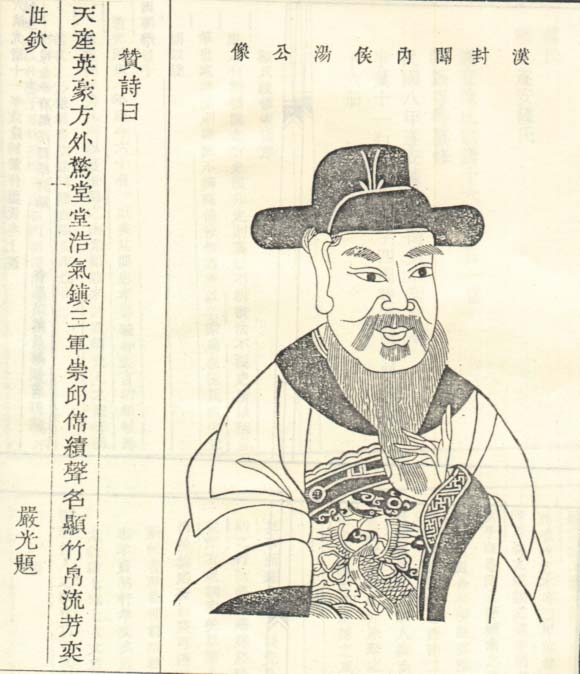 漢封關內侯湯公像
贊詩曰
天產英豪方外驚堂堂浩氣鎮三軍崇邱績聲名顯竹帛流芳奕
世欽
嚴光題